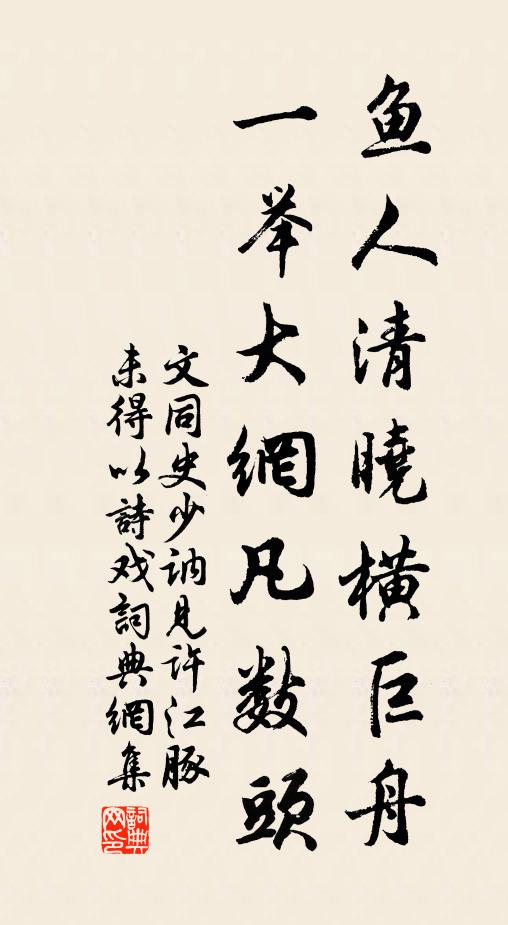 鱼人清曉橫巨舟
一举大網凡数頭
文同史少訥見許江豚
未得以詩戏詞典網集
詞典
网印